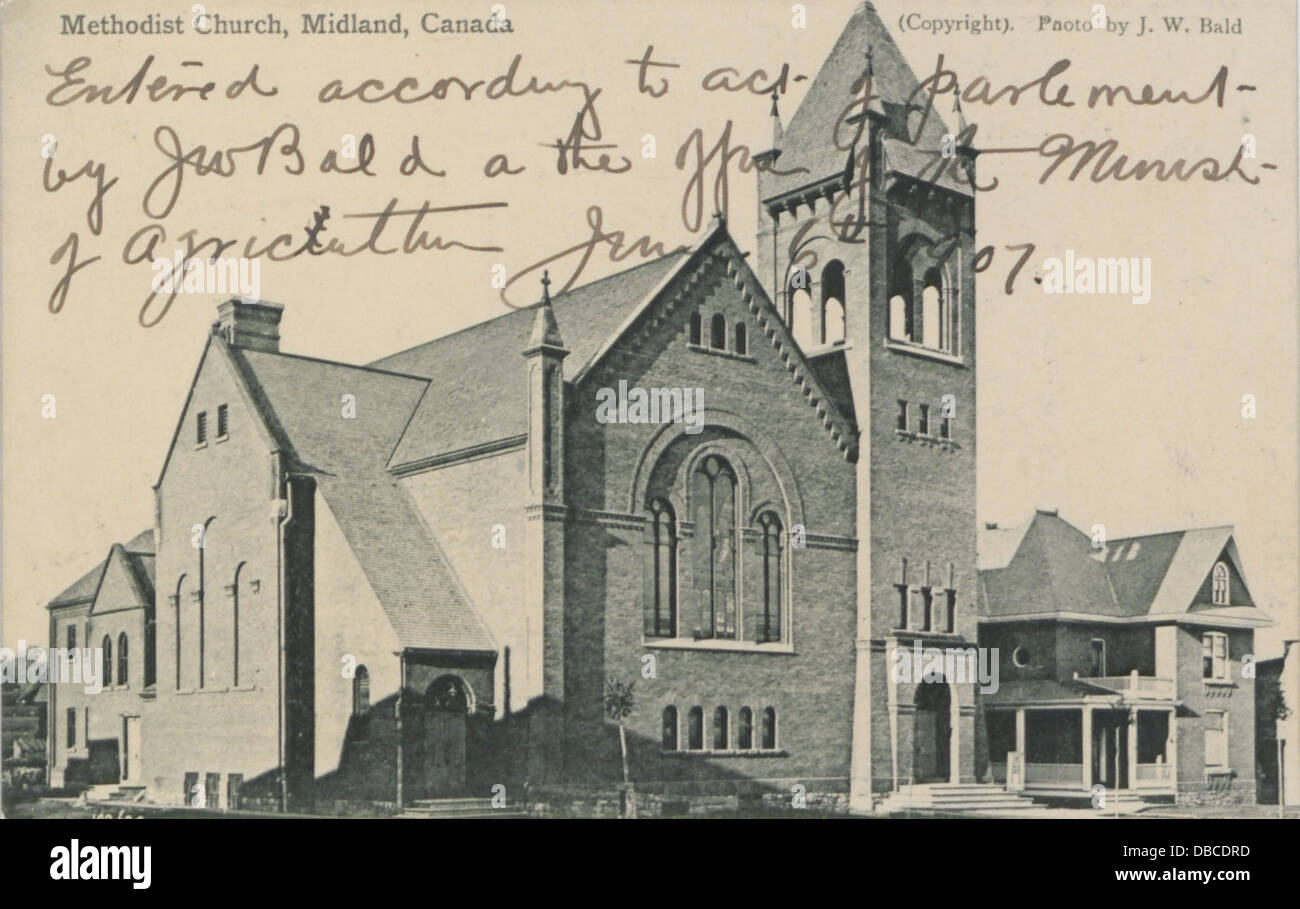 Methodist Church, Midland, Canada
(Copyright). Photo by J. W. Bald
Entered according to act of parlement
by JW Bald a the offce of the Minist
of Agricutther Jan 6 1907.
alamy
Image ID: DBCDRD
www.alamy.com